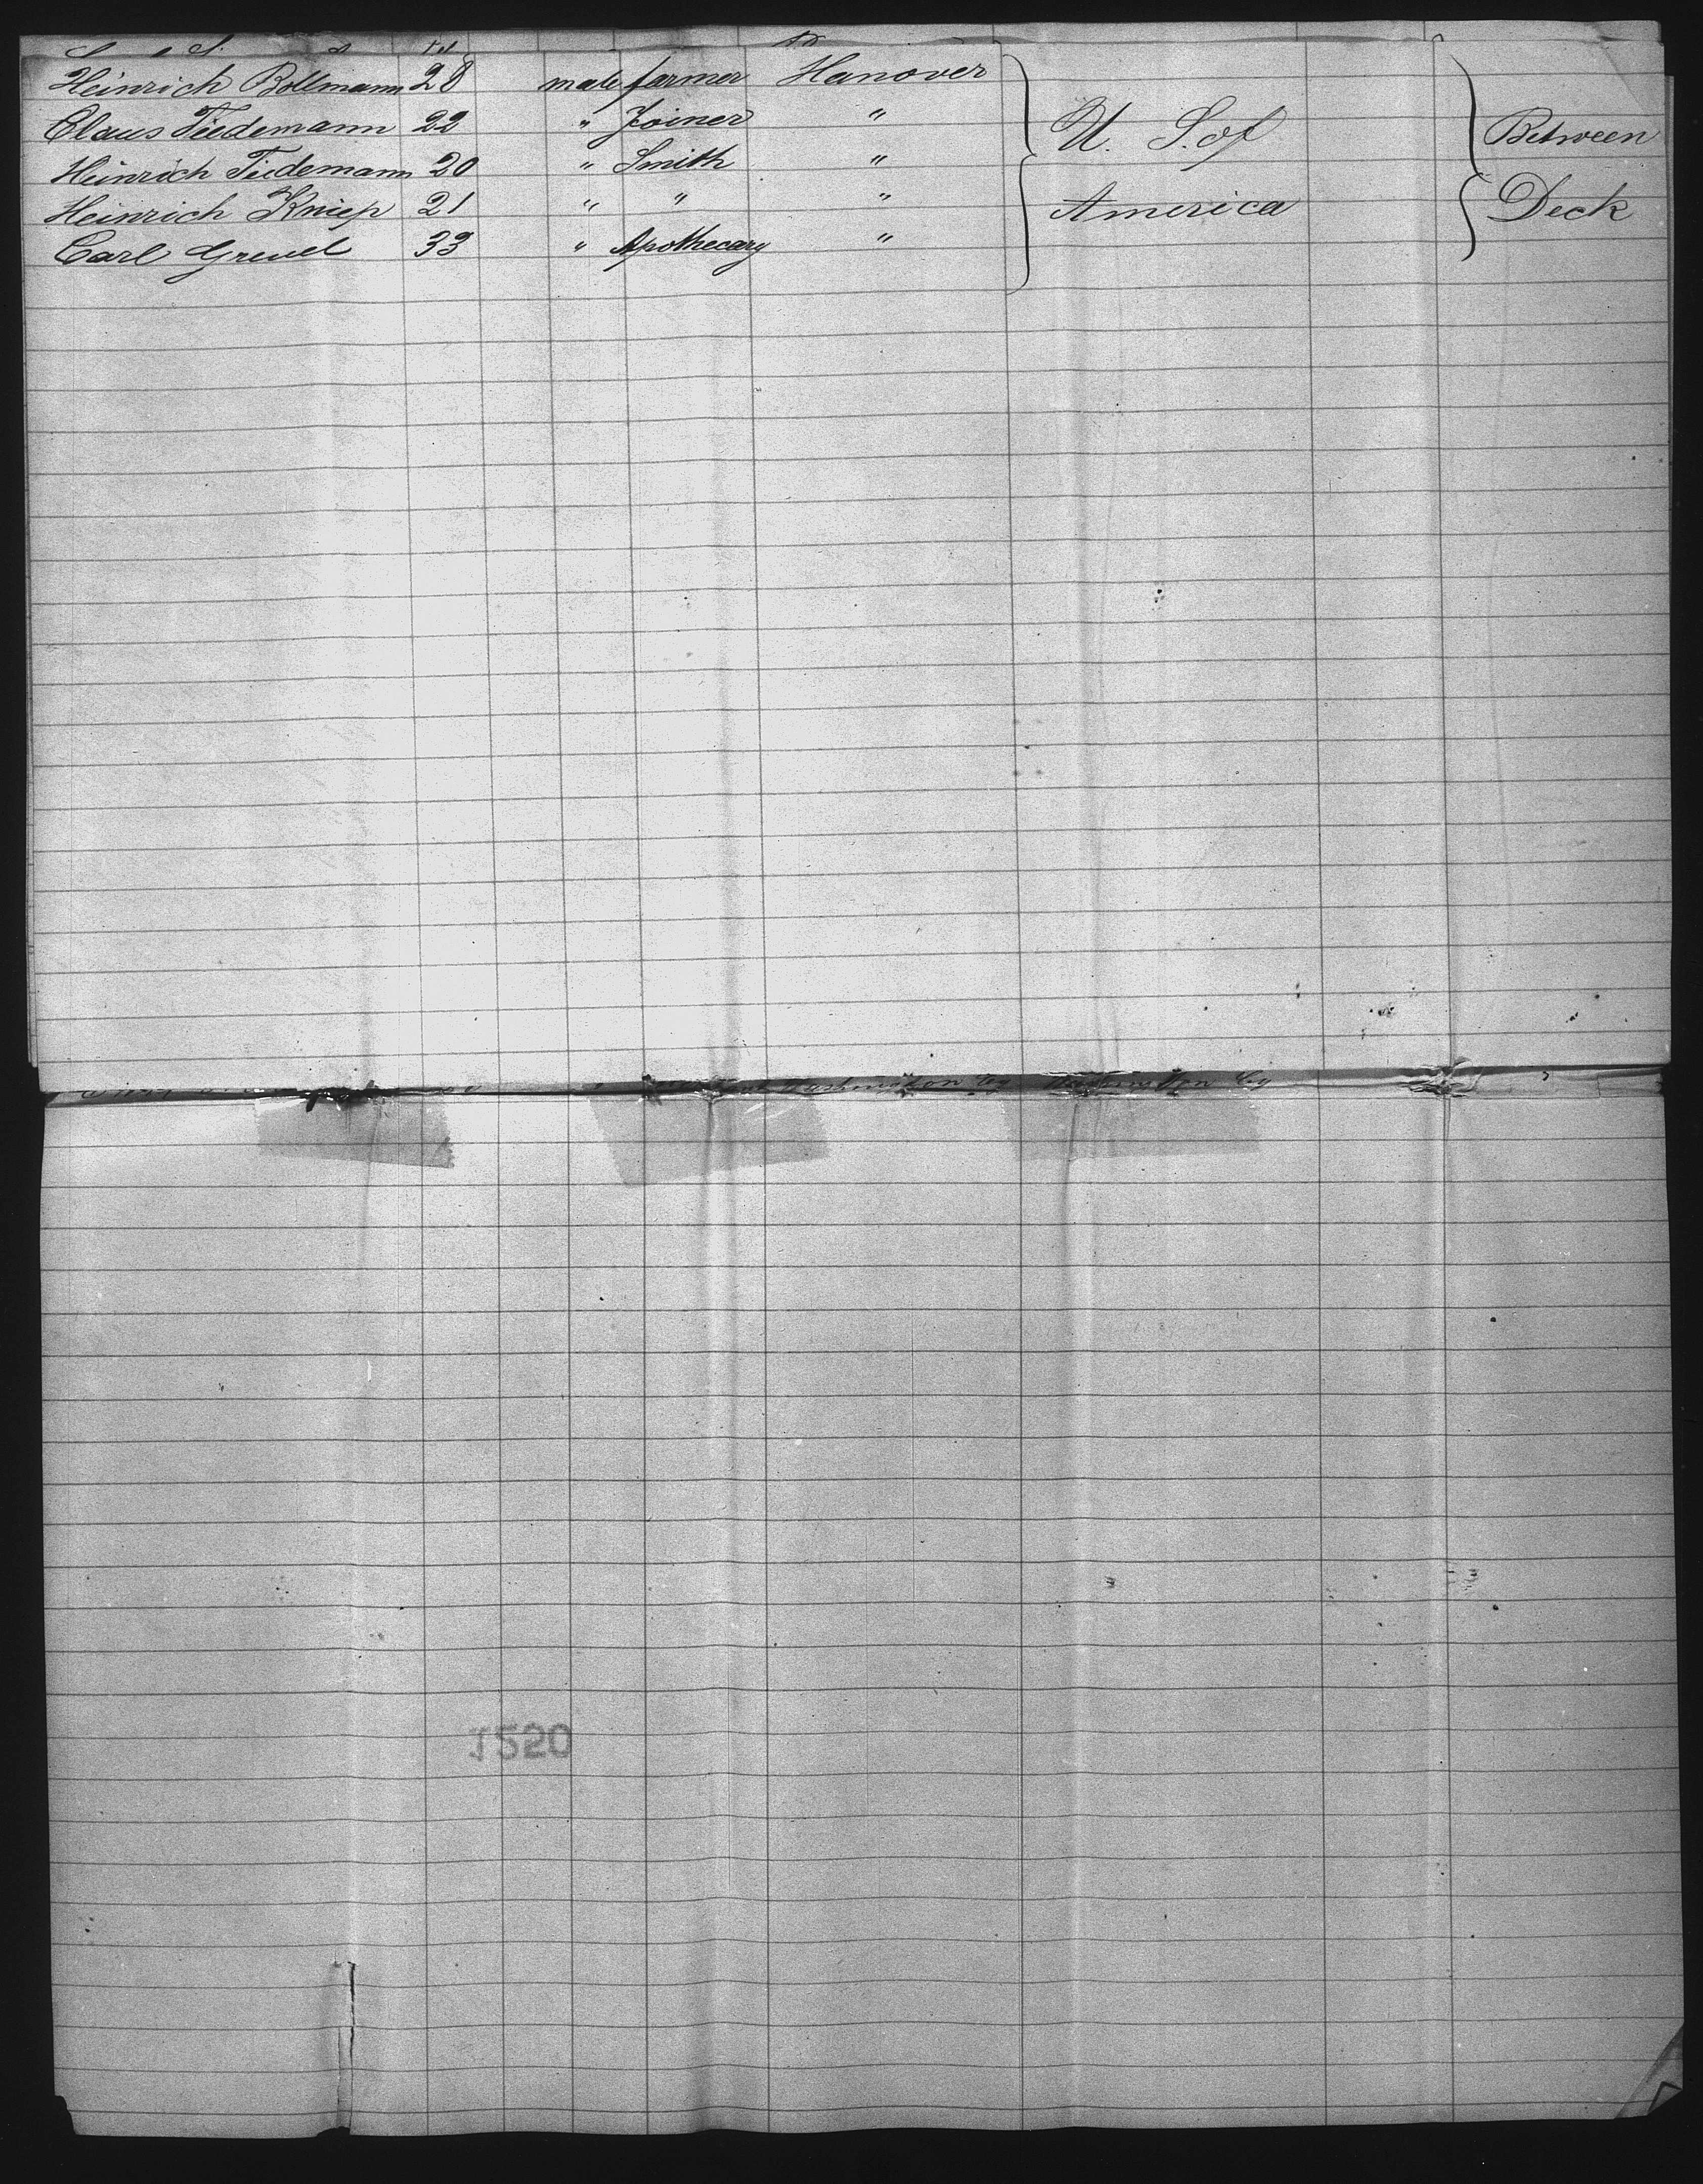 Heinrich Bollmann 28 male farmer Hanover
Claus Tiedemann 22 " Joiner " U. S. of Between
Heinrich Tiedemann 20 " Smith "
Heinrich Kniep 21 " " " America Deck
Carl Greuel 33 " Apothecary "
Washington Cy Washington Cy
1220